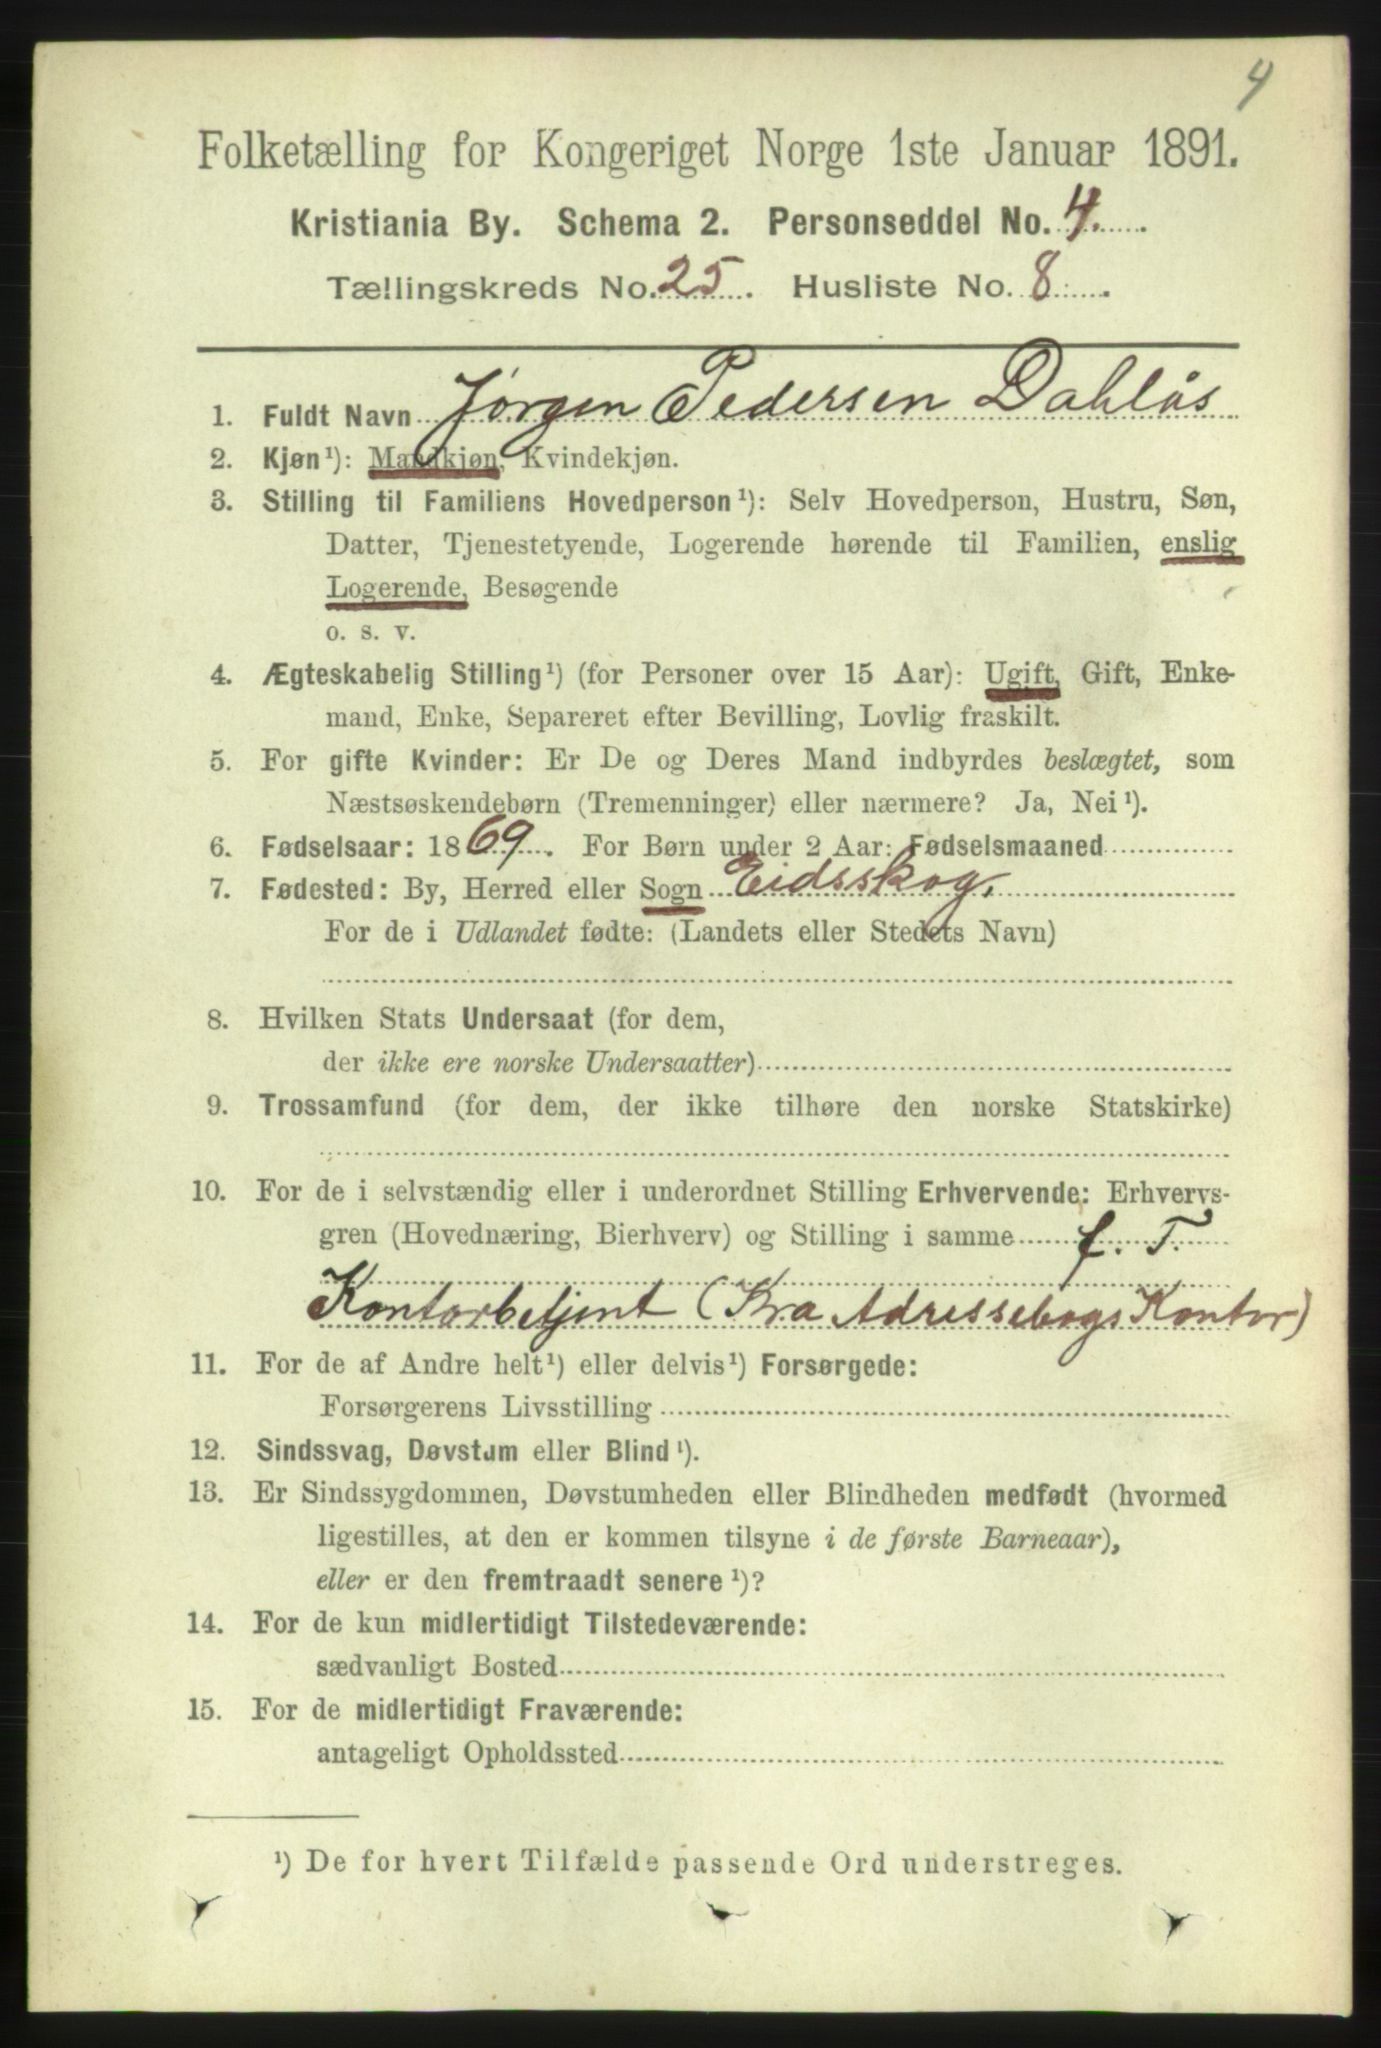 4
Folketælling for Kongeriget Norge 1ste Januar 1891.
Kristiania By. Schema 2. Personseddel No. 4.
Tællingskreds No. 25. Husliste No. 8.
1. Fuldt Navn Jørgen Pedersen Dahlås
2. Kjøn¹): Mandkjøn, Kvindekjøn.
3. Stilling til Familiens Hovedperson¹): Selv Hovedperson, Hustru, Søn,
Datter, Tjenestetyende, Logerende hørende til Familien, enslig
Logerende, Besøgende
o. s. v.
4. Ægteskabelig Stilling¹) (for Personer over 15 Aar): Ugift, Gift, Enke-
mand, Enke, Separeret efter Bevilling, Lovlig fraskilt.
5. For gifte Kvinder: Er De og Deres Mand indbyrdes beslægtet, som
Næstsøskendebørn (Tremenninger) eller nærmere? Ja, Nei¹).
6. Fødselsaar: 1869. For Børn under 2 Aar: Fødselsmaaned
7. Fødested: By, Herred eller Sogn Eidsskog.
For de i Udlandet fødte: (Landets eller Stedets Navn)
8. Hvilken Stats Undersaat (for dem,
der ikke ere norske Undersaatter)
9. Trossamfund (for dem, der ikke tilhøre den norske Statskirke)
10. For de i selvstændig eller i underordnet Stilling Erhvervende: Erhvervs-
gren (Hovednæring, Bierhverv) og Stilling i samme f. T.
Kontorbetjent (Kra Adressebogs Kontor)
11. For de af Andre helt¹) eller delvis¹) Forsørgede:
Forsørgerens Livsstilling
12. Sindssvag, Døvstum eller Blind¹).
13. Er Sindssygdommen, Døvstumheden eller Blindheden medfødt (hvormed
ligestilles, at den er kommen tilsyne i de første Barneaar),
eller er den fremtraadt senere¹)?
14. For de kun midlertidigt Tilstedeværende:
sædvanligt Bosted
15. For de midlertidigt Fraværende:
antageligt Opholdssted
¹) De for hvert Tilfælde passende Ord understreges.